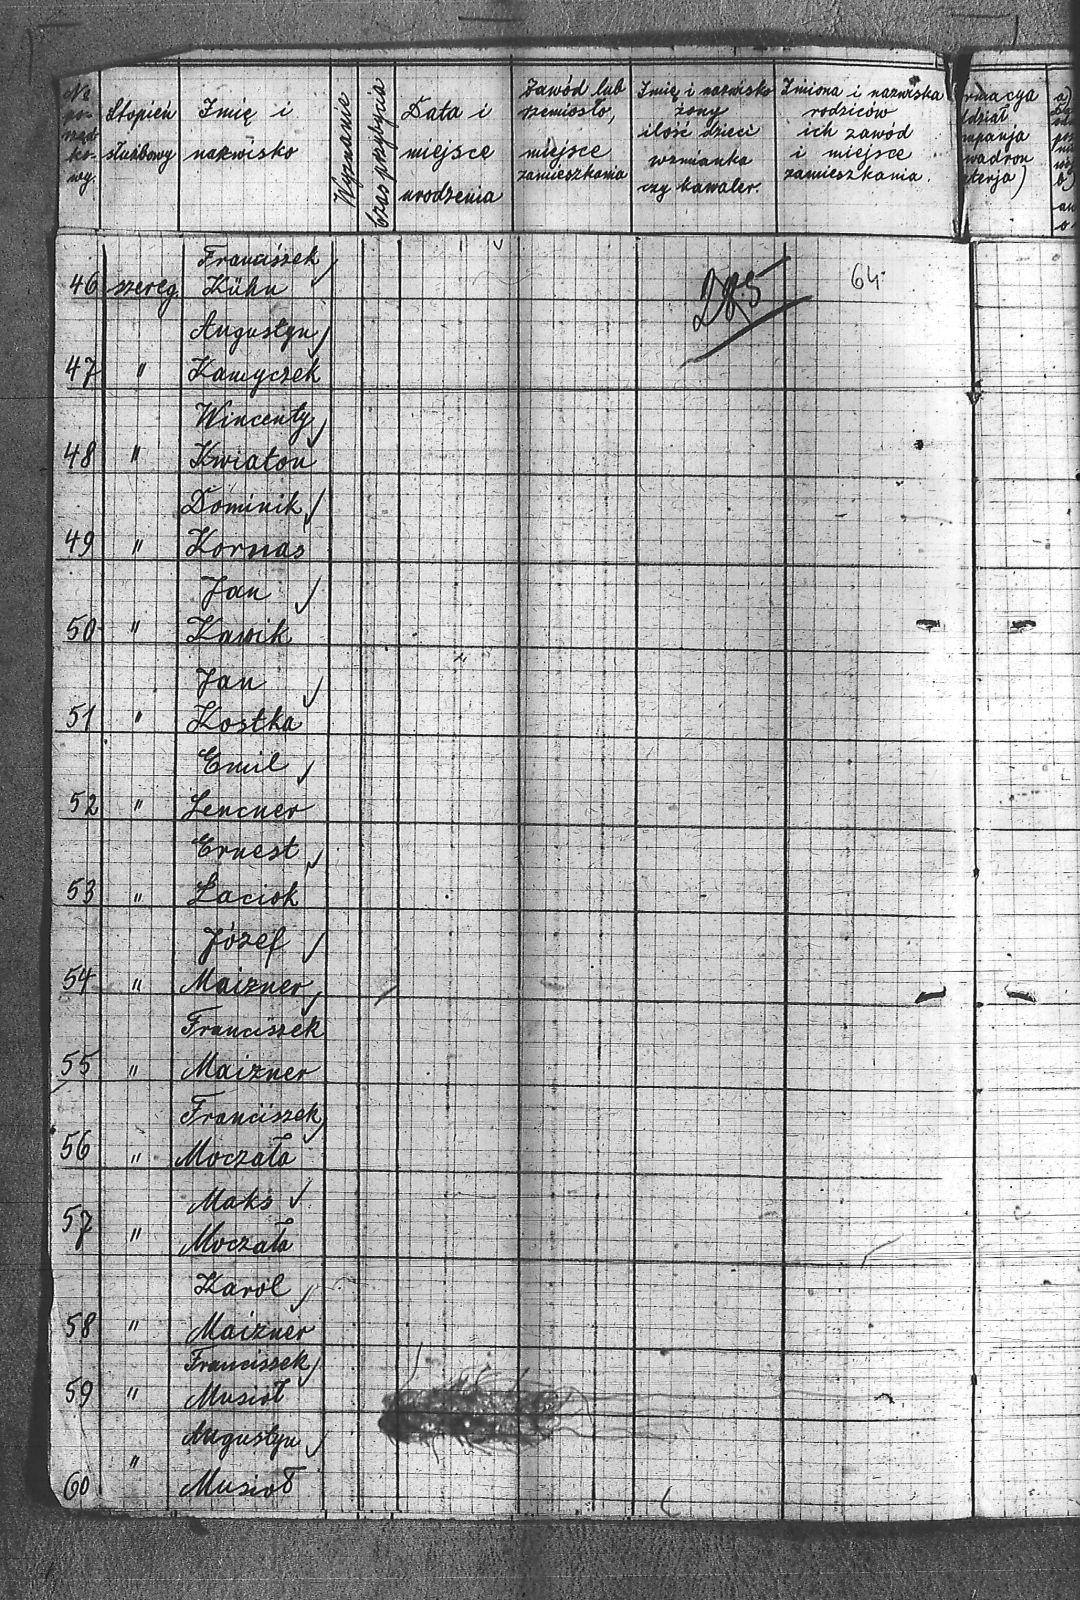 № po-rząd-ko-wy.
Stopień służbowy
Imię i nazwisko
Wyznanie
Czas przybycia
Data i miejsce urodzenia
Zawód lub rzemiosło, miejsce zamieszkania
Imię i nazwisko żony ilość dzieci wzmianka czy kawaler.
Imiona i nazwiska rodziców ich zawód i miejsce zamieszkania.
rmacya
ddział
mpanja
wadron
terja)
285
64
Franciszek
46 szereg. Kühn
Augustyn
47 " Kamyczek
Wincenty
48 " Kwiaton
Dominik
49 " Kornas
Jan
50 " Kawik
Jan
51 " Kostka
Emil
52 " Lencner
Ernest
53 " Łaciok
Józef
54 " Maizner
Franciszek
55 " Maizner
Franciszek
56 " Moczała
Maks
57 " Moczała
Karol
58 " Maizner
Franciszek
59 " Musioł
Augustyn
60 " Musioł